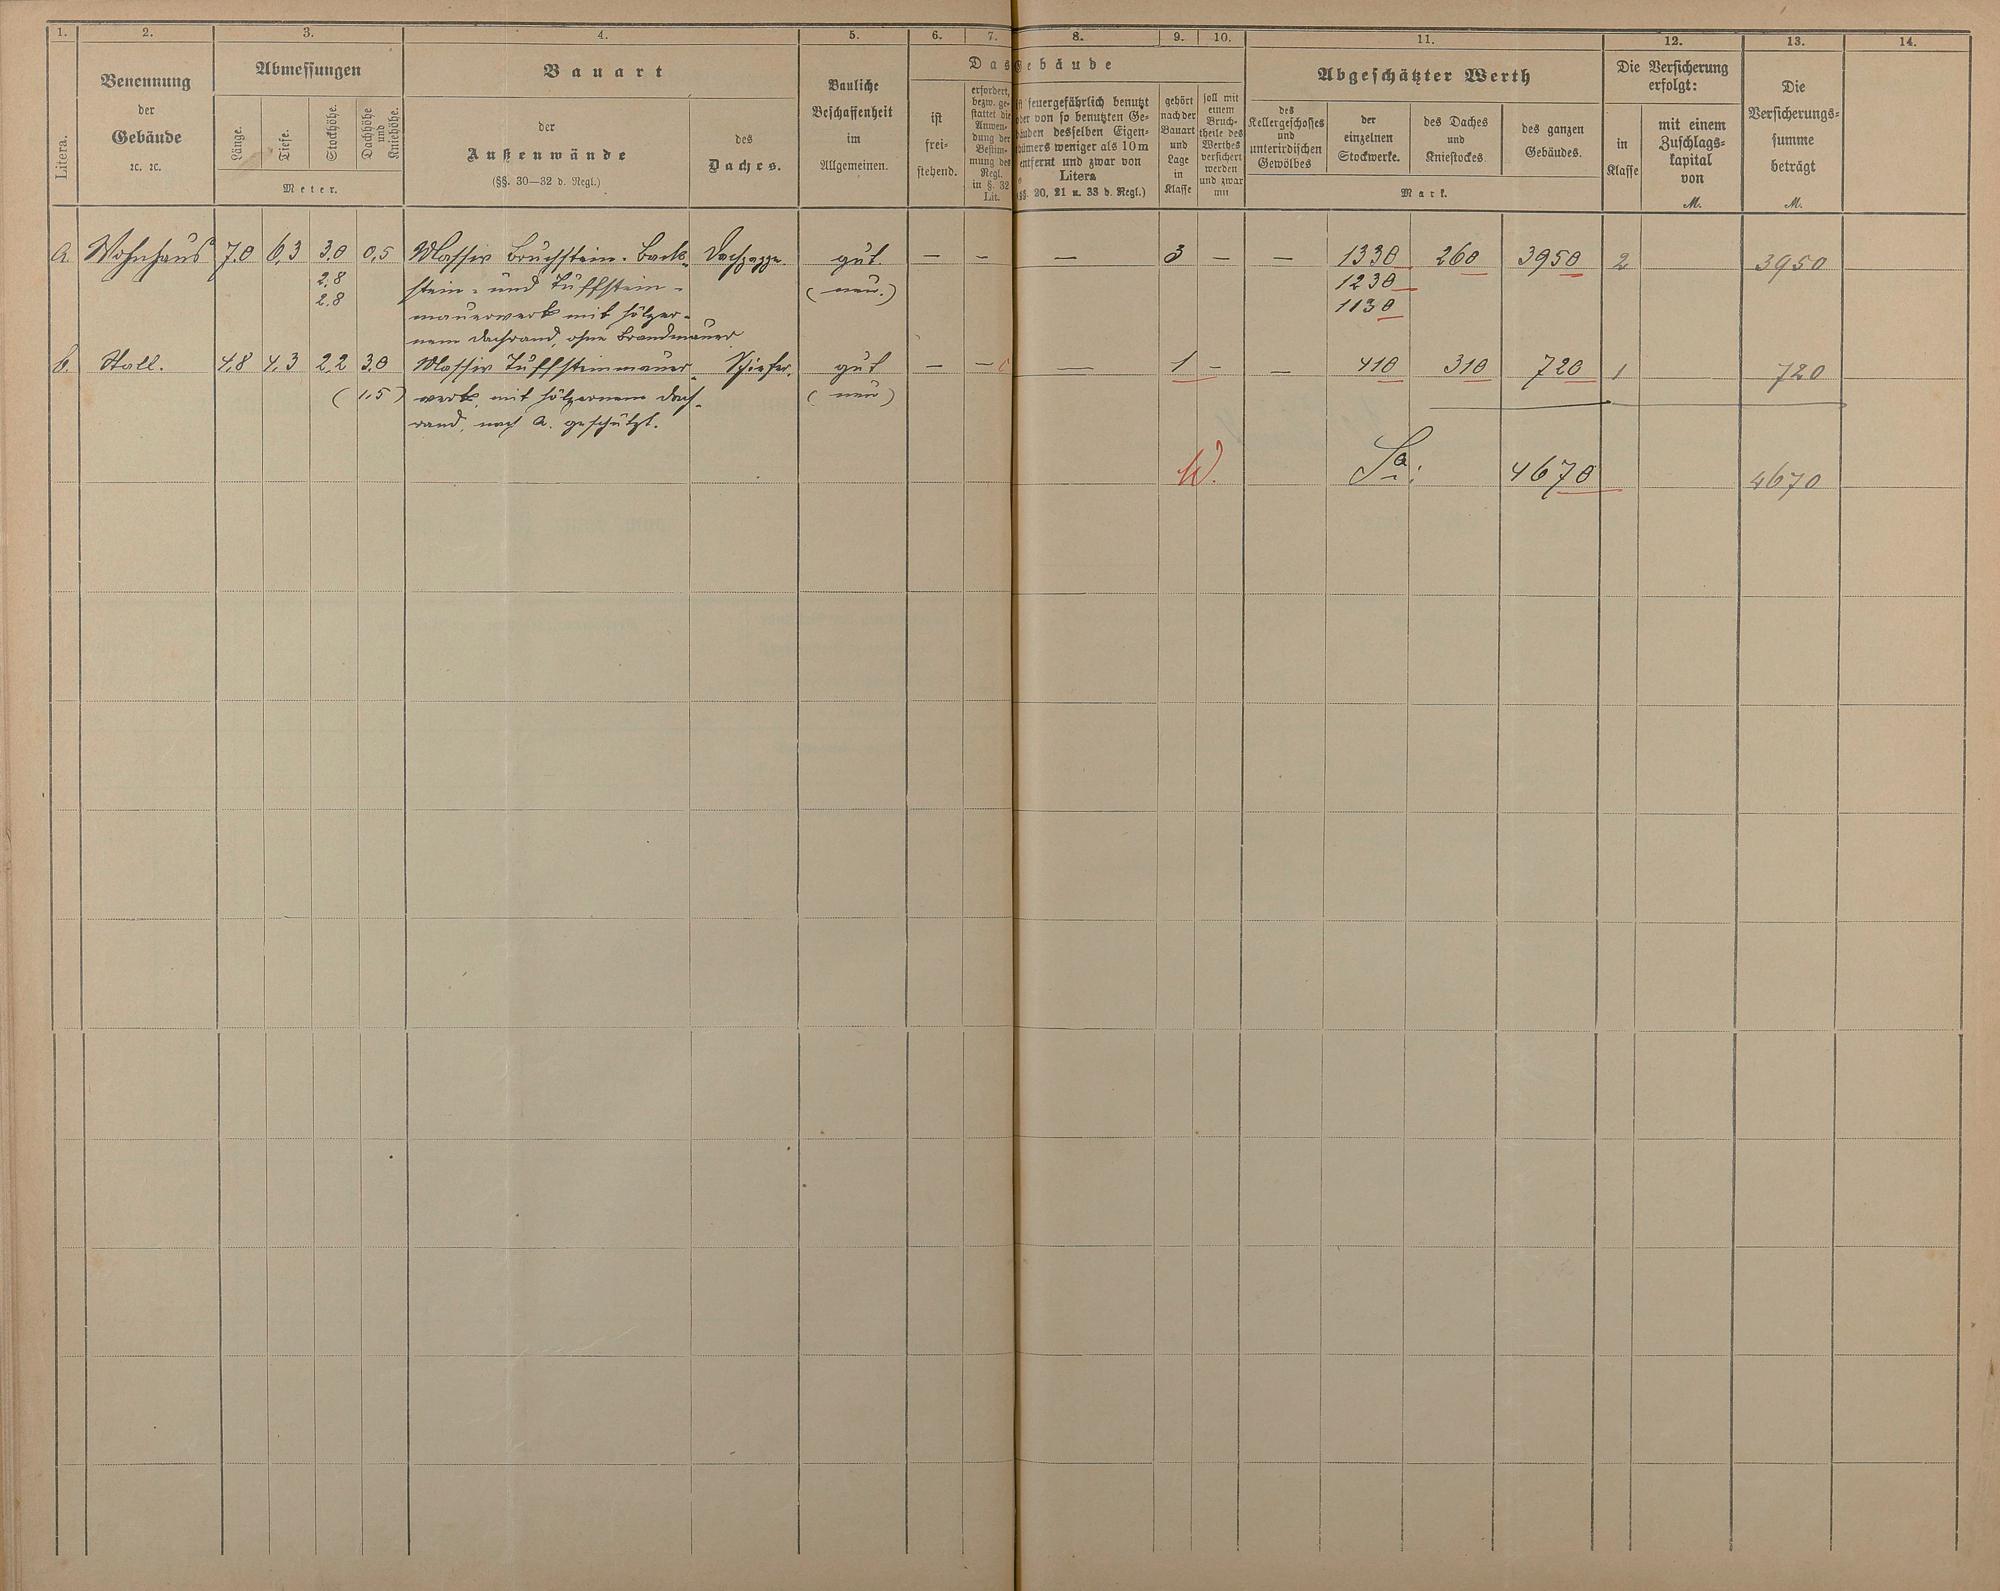 1. 2. 3. 4. 5. 6. 7. 8. 9. 10. 11. 12. 13. 14.
Litera.
Benennung
der
Gebäude
ꝛc. ꝛc.
Abmessungen
Länge.
Tiefe.
Stockhöhe.
Dachhöhe
und
Kniehöhe.
Meter.
Bauart
der
Außenwände
(§§. 30—32 d. Regl.)
des
Daches.
Bauliche
Beschaffenheit
im
Allgemeinen.
Das Gebäude
ist
frei-
stehend.
erfordert,
bezw. ge-
stattet die
Anwen-
dung der
Bestim-
mung des
Regl.
in §. 32
Lit.
feuergefährlich benutzt
oder von so benutzten Ge-
bäuden desselben Eigen-
tümers weniger als 10 m
entfernt und zwar von
Litera
(§§. 20, 21 u. 33 d. Regl.)
gehört
nach der
Bauart
und
Lage
in
Klasse
soll mit
einem
Bruch-
theile des
Werthes
versichert
werden
und zwar
mit
Abgeschätzter Werth
des
Kellergeschosses
und
unterirdischen
Gewölbes
der
einzelnen
Stockwerke.
des Daches
und
Kniestockes.
des ganzen
Gebäudes.
Mark.
Die Versicherung
erfolgt:
in
Klasse
mit einem
Zuschlags-
kapital
von
M.
Die
Versicherungs-
summe
beträgt
M.
a. Wohnhaus 7,0 6,3 3,0 0,5 Massiv Bruchstein- Back- Dachpappe. gut. — — — 3 — — 1330 260 3950 2 3950
2,8 stein- und Tuffstein- (neu.) 1230
2,8 mauerwerk mit hölzer- 1130
nem Dachrand, ohne Brandmauer
b. Stall. 4,8 4,3 2,2 3,0 Massiv Tuffsteinmauer- Schiefer. gut — — — 1 — — 410 310 720 1 720
(1,5) werk, mit hölzernem Dach- (neu)
rand, nach A. geschützt.
W. Sa. 4670 4670